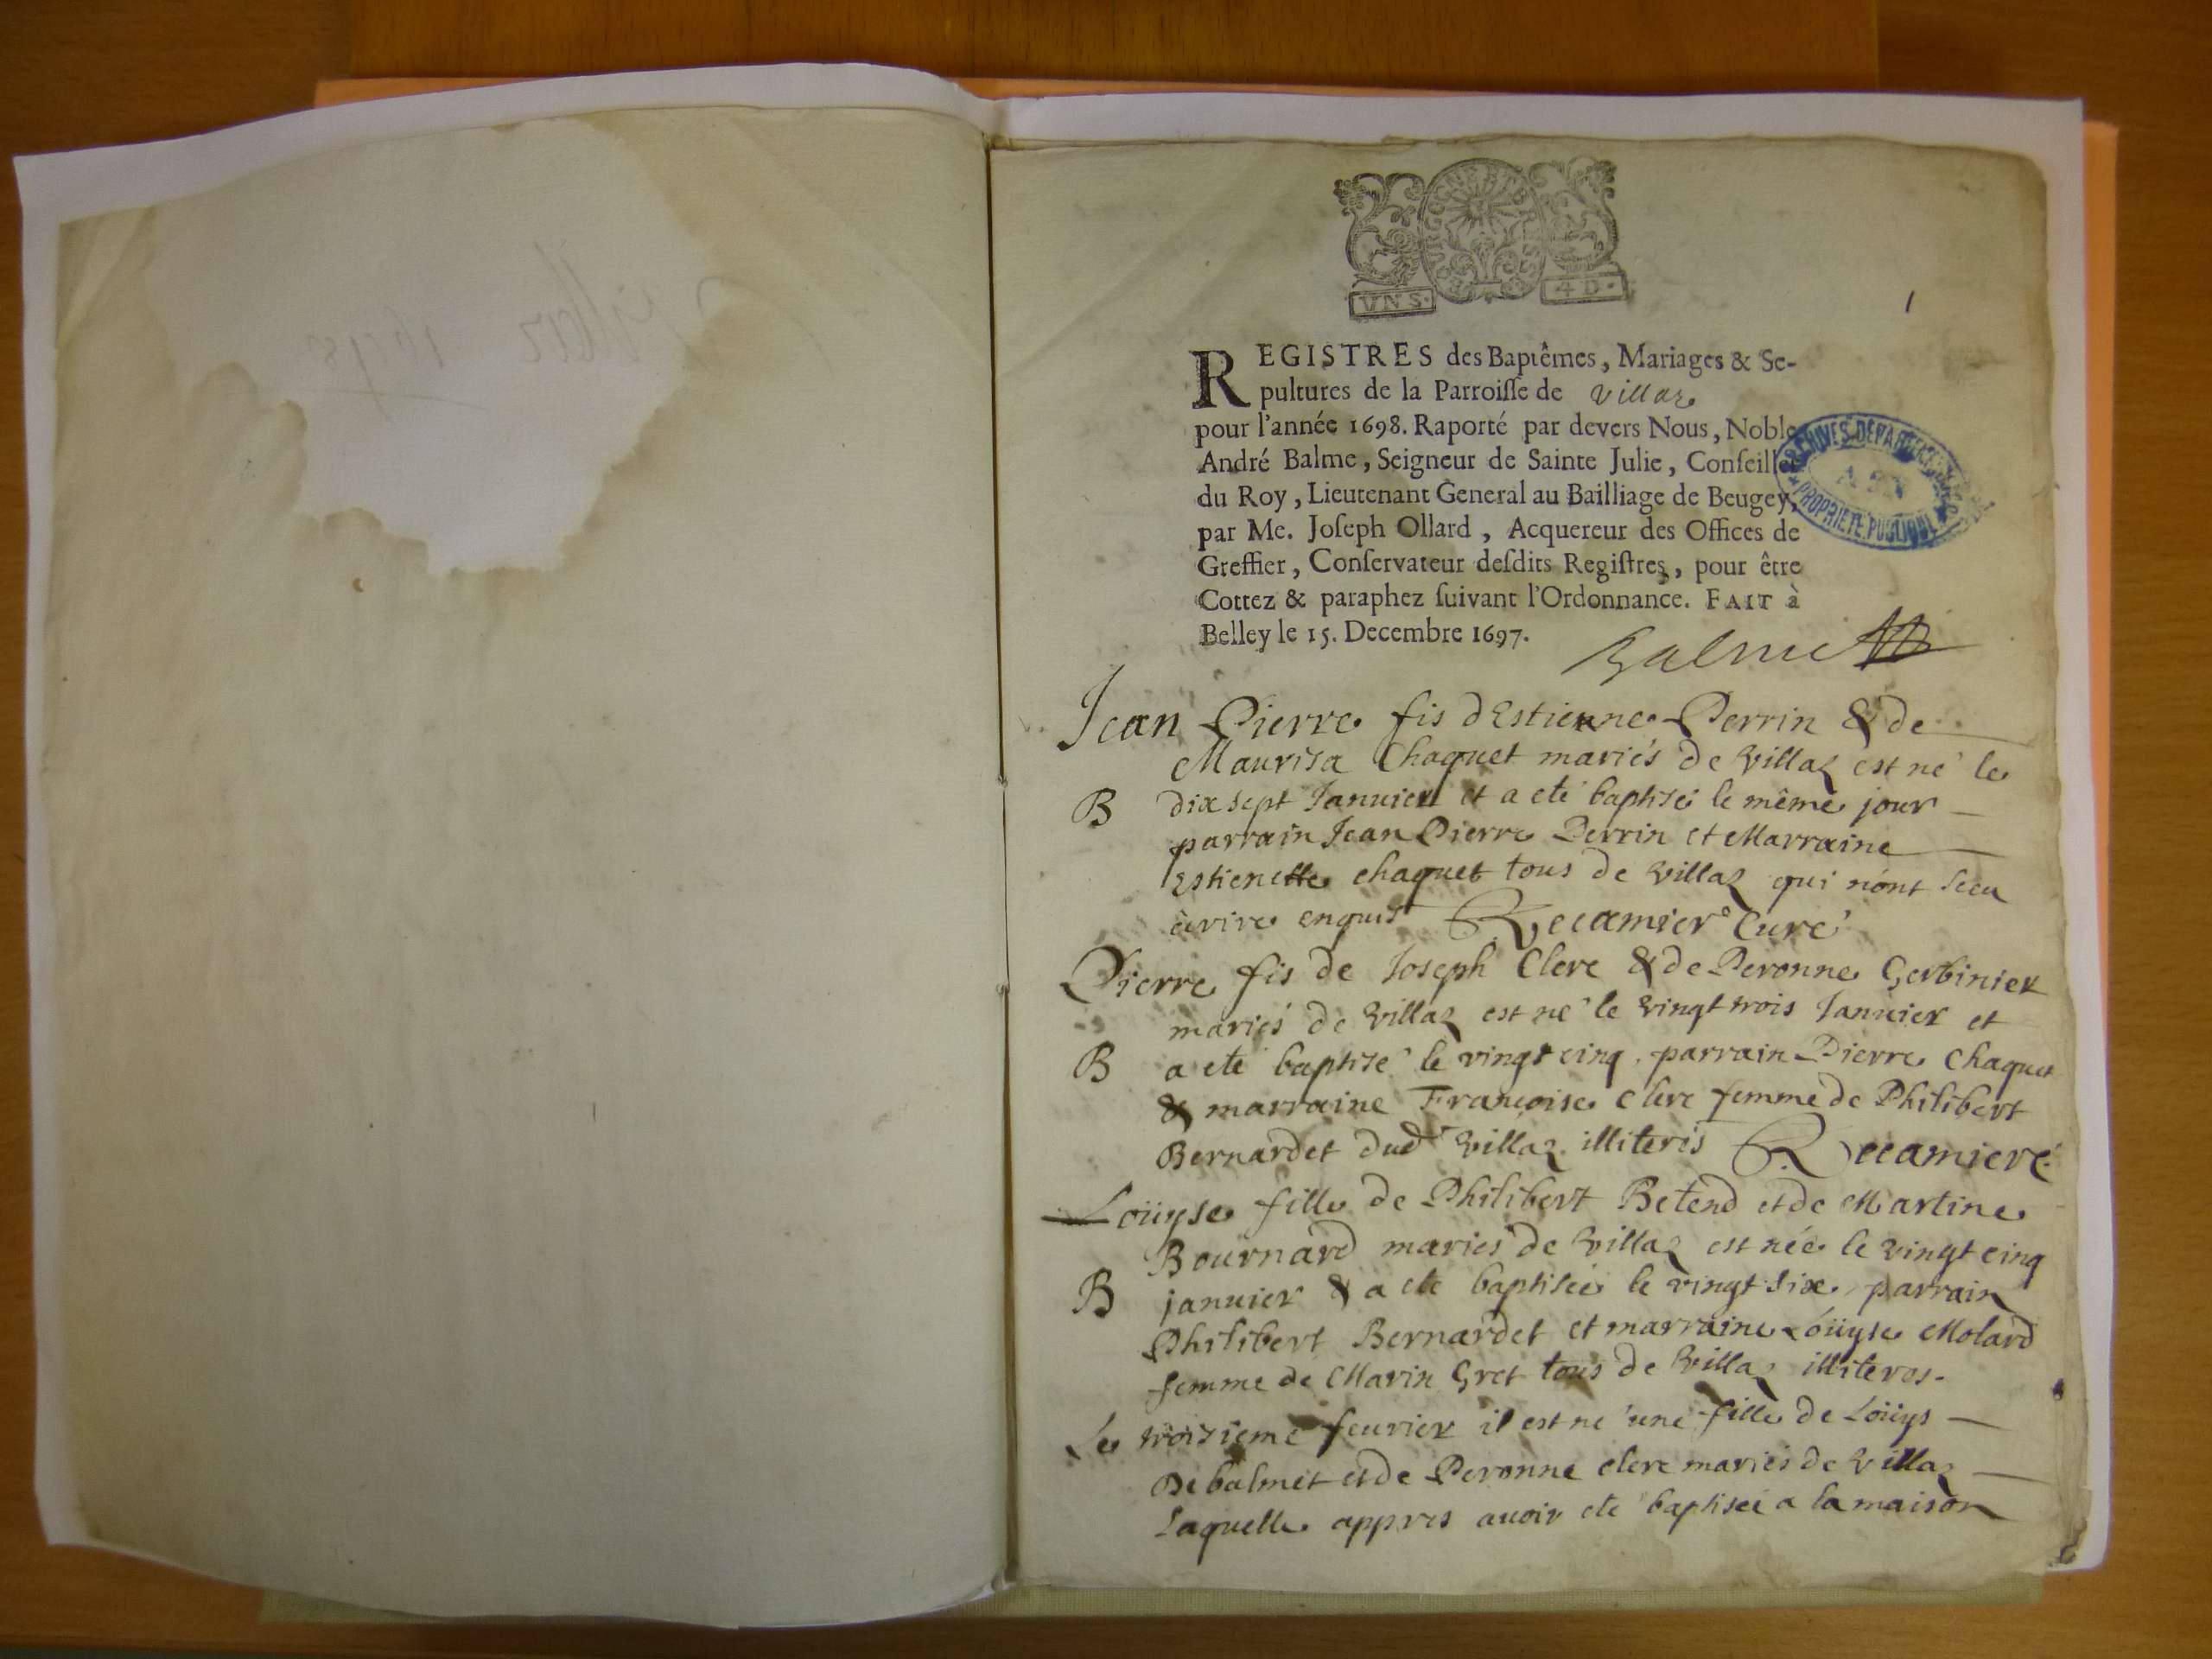 VNS.
4D.
1
REGISTRES des Baptêmes, Mariages & Se-
pultures de la Parroisse de Villaz
pour l'année 1698. Raporté par devers Nous, Noble
André Balme, Seigneur de Sainte Julie, Conseiller
du Roy, Lieutenant General au Bailliage de Beugey,
par Me. Joseph Ollard, Acquereur des Offices de
Greffier, Conservateur desdits Registres, pour être
Cottez & paraphez suivant l'Ordonnance. FAIT à
Belley le 15. Decembre 1697.
ARCHIVES DEPARTEMENTALES
AIN
PROPRIETE PUBLIQUE
Balme
Jean Pierre fis d'Estienne Perrin & de
Maurisa Chaquet mariés de Villaz est né le
B dix sept Januier et a eté baptisé le même jour
parrain Jean Pierre Perrin et Marraine
Estienette chaquet tous de Villaz qui n'ont sceu
écrire enquis Recamier Curé
Pierre fis de Joseph Clerc & de Peronne Gerbinier
mariés de Villaz est né le vingt trois Januier et
B a eté baptisé le vingt cinq, parrain Pierre Chaquet
& marraine Francoise Clerc femme de Philibert
Bernardet dud Villaz illiterés Recamier C.
Loüyse fille de Philibert Betend et de Martine
Bournard mariés de Villaz est née le vingt cinq
B januier & a eté baptisée le vingt six, parrain
Philibert Bernardet et marraine Loüyse Molard
femme de Marin Gret tous de Villaz illiteros.
Le troisieme feurier il est né une fille de Loüys
Debalmet et de Peronne clerc mariés de Villaz
Laquelle appres auoir eté baptisée a la maison